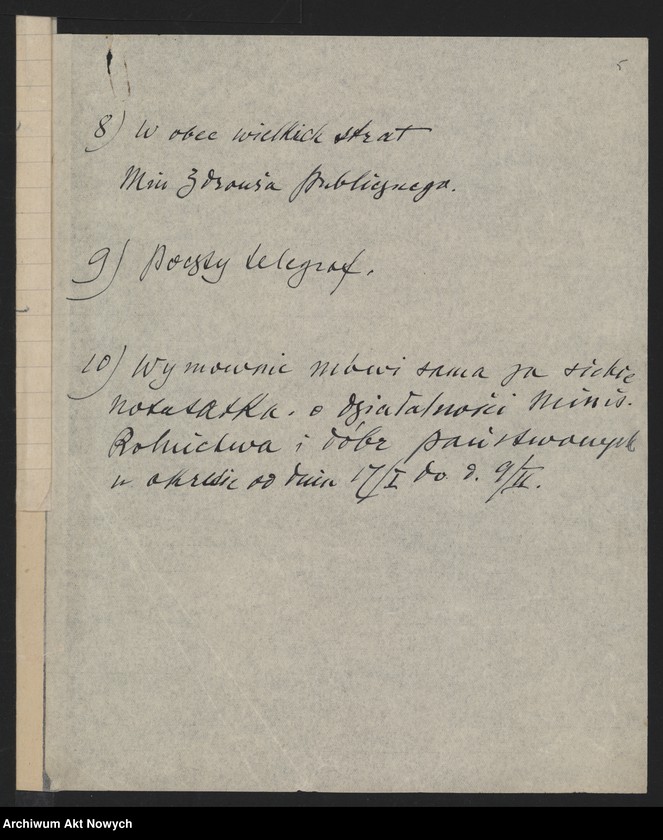 5
8) W obec wielkich strat
Min Zdrowia Publicznego.
9) Poczty telegraf.
10) Wymownie mówi sama za siebie
notatatka. o działalności Minis.
Rolnictwa i dóbr państwowych
w okresie od dnia 17/I do d. 9/II.
Archiwum Akt Nowych